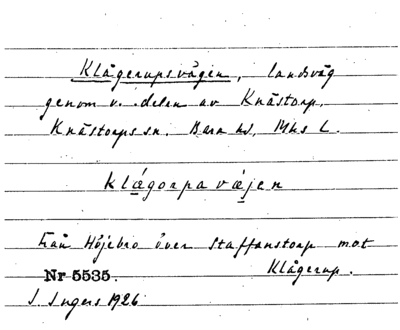 Klågerupsvägen, landsväg
genom v. delen av Knästorp,
Knästorps sn. Bara hd, Mhs L.
klågorpa väjen
Från Höjebro över Staffanstorp mot
Klågerup.
Nr 5535.
I. Ingers 1926